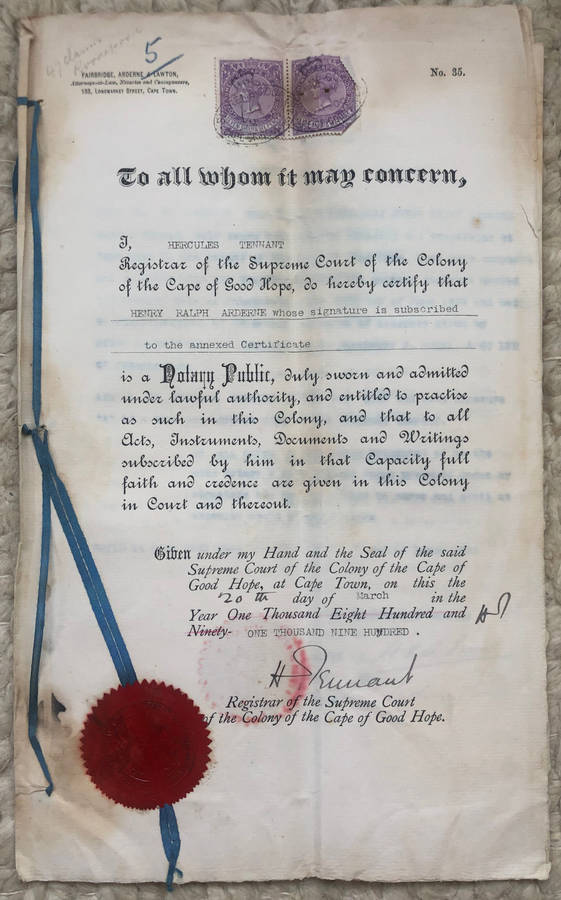 5
FAIRBRIDGE, ARDERNE & LAWTON,
Attorneys-at-Law, Notaries and Conveyancers,
LONGMARKET STREET, CAPE TOWN.
No. 35.
To all whom it may concern,
I, HERCULES TENNANT
Registrar of the Supreme Court of the Colony
of the Cape of Good Hope, do hereby certify that
HENRY RALPH ARDERNE whose signature is subscribed
to the annexed Certificate
is a Notary Public, duly sworn and admitted
under lawful authority, and entitled to practise
as such in this Colony, and that to all
Acts, Instruments, Documents and Writings
subscribed by him in that Capacity full
faith and credence are given in this Colony
in Court and thereout.
Given under my Hand and the Seal of the said
Supreme Court of the Colony of the Cape of
Good Hope, at Cape Town, on this the
20th day of March in the
Year One Thousand Eight Hundred and HT
Ninety- ONE THOUSAND NINE HUNDRED .
H Tennant
Registrar of the Supreme Court
of the Colony of the Cape of Good Hope.